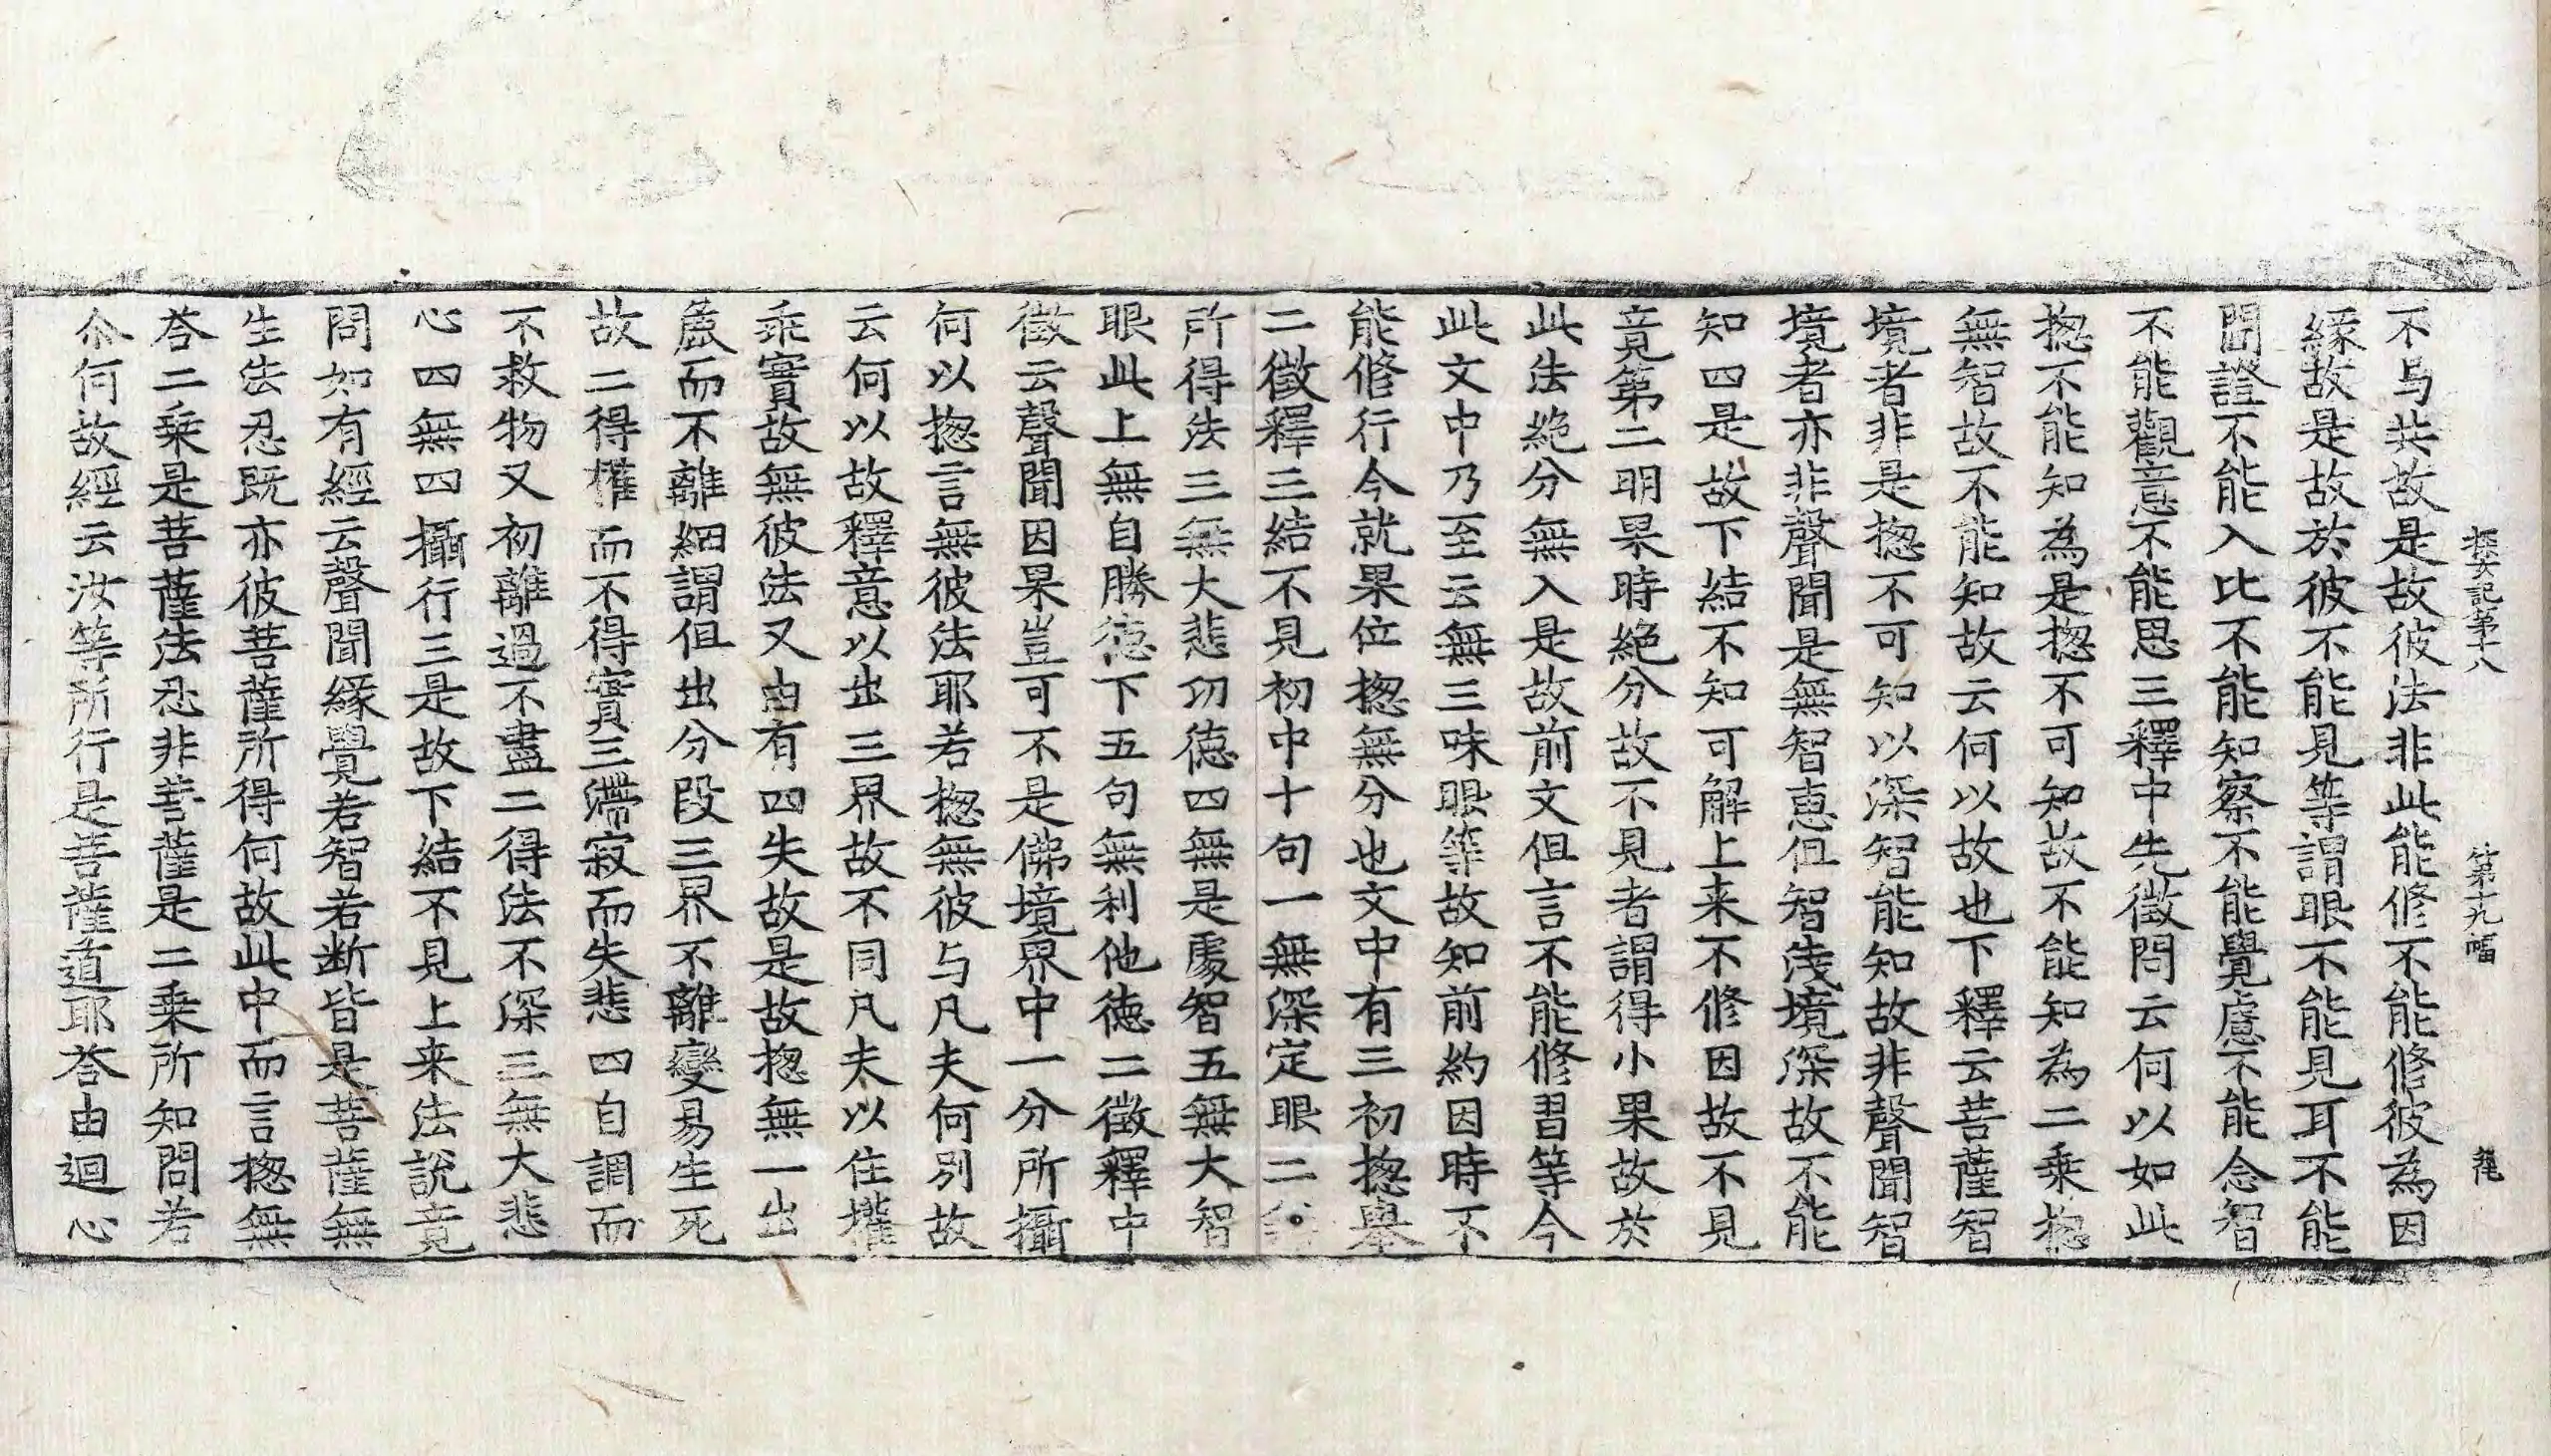 探玄記第十八 第十九幅 𮎰
不与共故是故彼法非此能修不能修彼為因
縁故是故於彼不能見等謂眼不能見耳不能
聞證不能入比不能知察不能覺慮不能念智
不能觀意不能思三釋中先徵問云何以如此
揔不能知為是揔不可知故不能知為二乗揔
無智故不能知故云何以故也下釋云菩薩智
境者非是揔不可知以深智能知故非聲聞智
境者亦非聲聞是無智恵但智浅境深故不能
知四是故下結不知可解上来不修因故不見
竟第二明果時絶分故不見者謂得小果故於
此法絶分無入是故前文但言不能修習等今
此文中乃至云無三昧眼等故知前約因時不
能修行今就果位揔無分也文中有三初揔舉
二徵釋三結不見初中十句一無深定眼二
所得法三無大悲㓛徳四無是處智五無大智
眼此上無自勝徳下五句無利他徳二徵釋中
徵云聲聞因果豈可不是佛境界中一分所攝
何以揔言無彼法耶若揔無彼与凡夫何別故
云何以故釋意以出三界故不同凡夫以住權
乖實故無彼法又由有四失故是故揔無一出
麁而不離細謂伹出分段三界不離變易生死
故二得權而不得實三滯寂而失悲四自調而
不救物又初離過不盡二得法不深三無大悲
心四無四攝行三是故下結不見上来法說竟
問如有經云聲聞縁覺若智若断皆是菩薩無
生法忍既亦彼菩薩所得何故此中而言揔無
荅二乗是菩薩法忍非菩薩是二乗所知問若
尒何故經云汝等所行是菩薩道耶荅由迴心